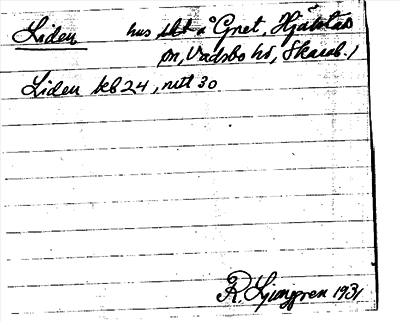 Liden hus å Gnet, Hjälstad
sn, Vadsbo hd, Skarab. l
Liden kb 24, nitt 30
R. Ljunggren 1931